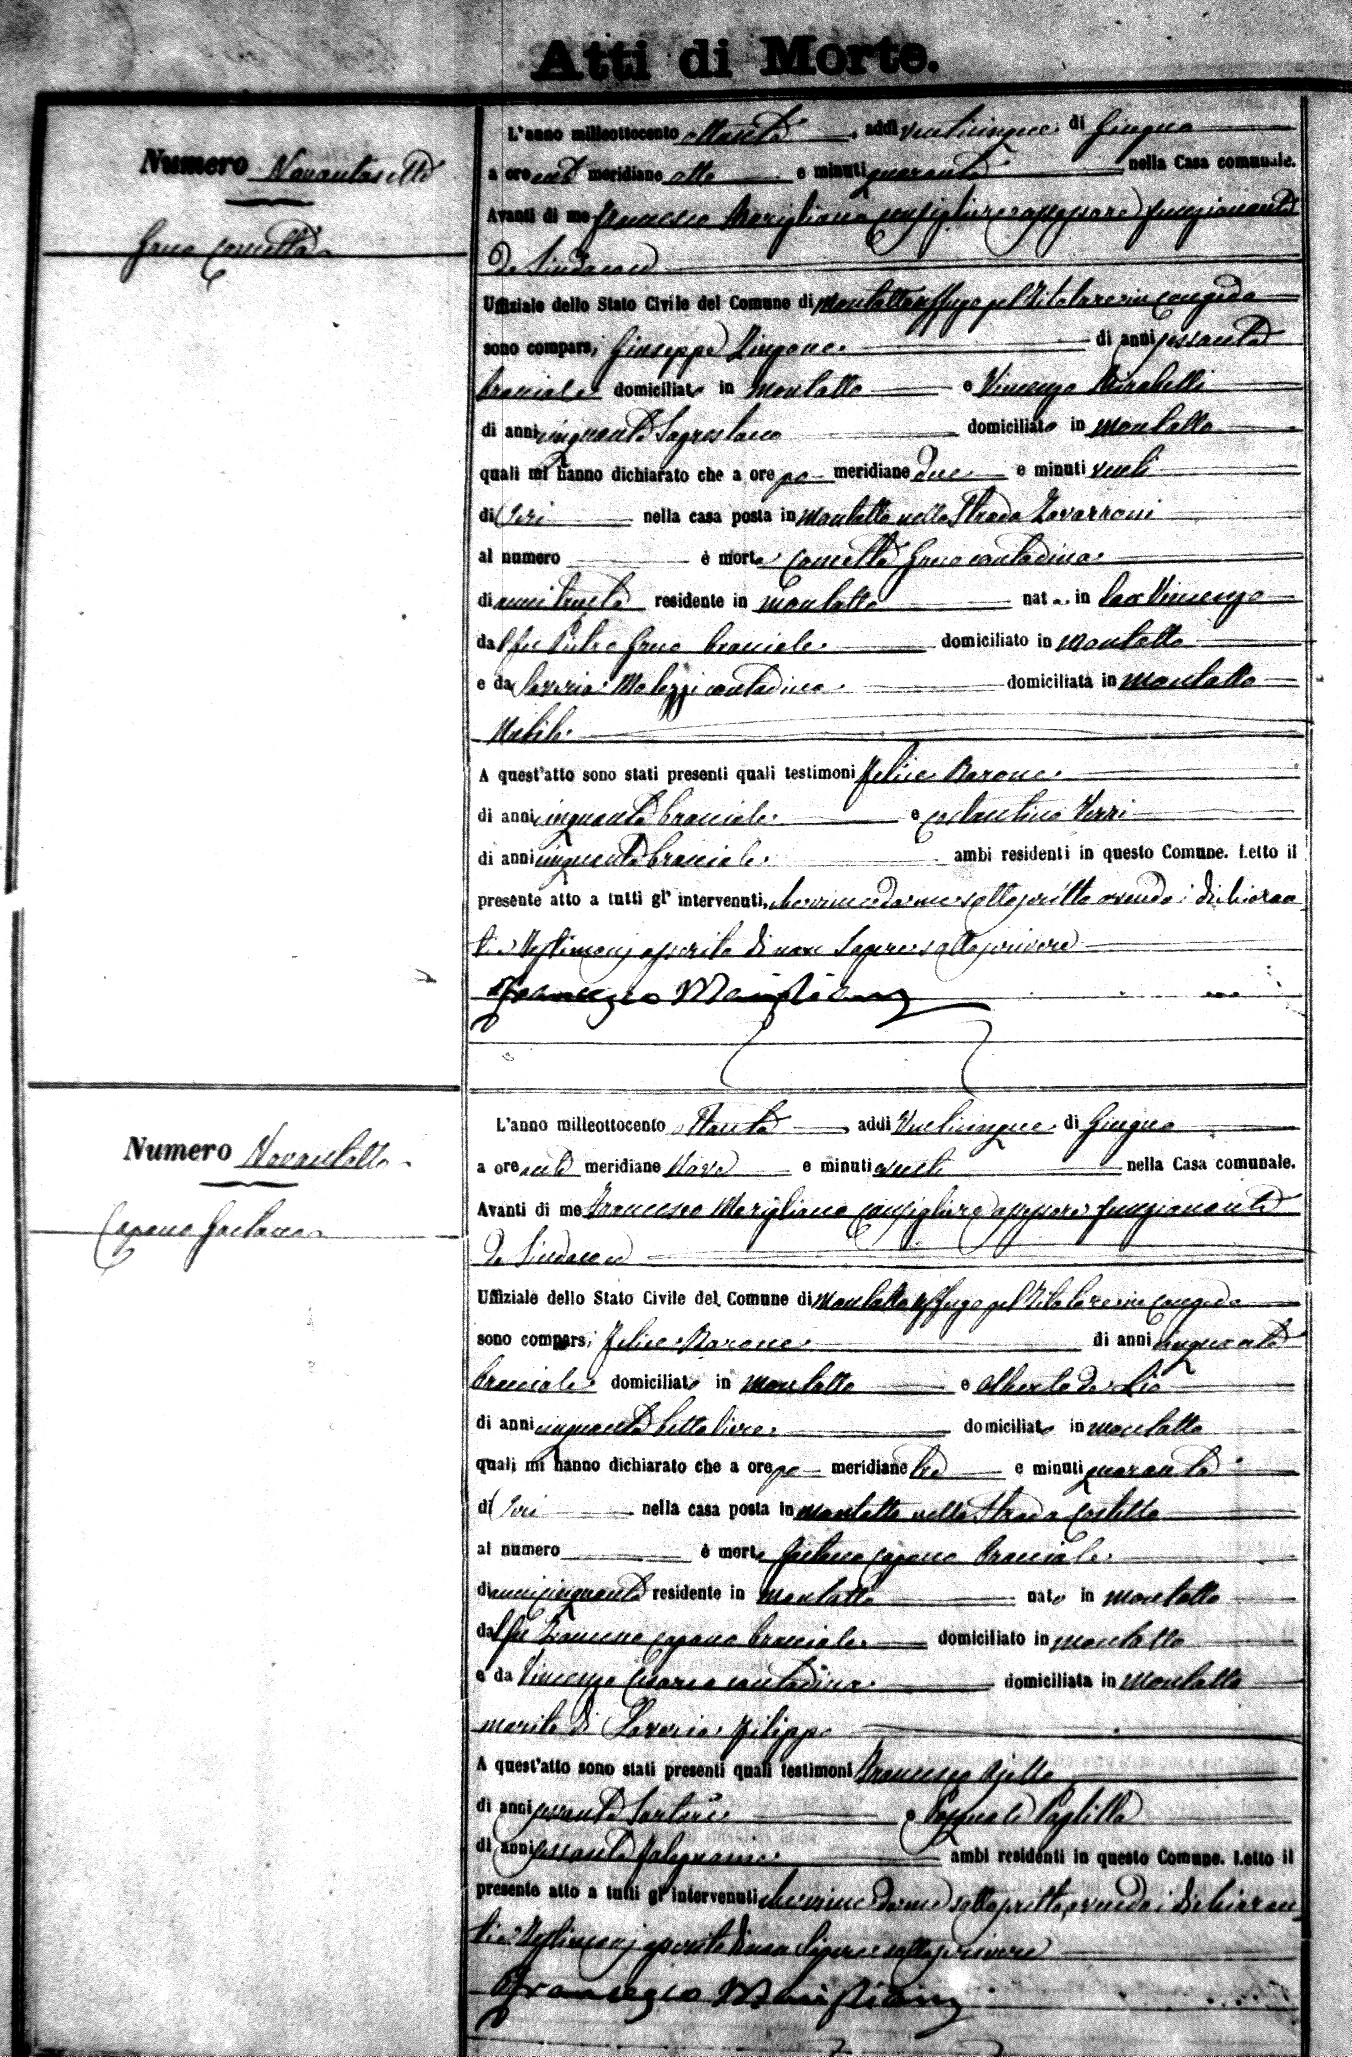 Atti di Morte.
Numero Novantasette
Greco Concetta
L'anno milleottocento ottanta, addì venticinque di Giugno
a ore anti meridiane otto e minuti quaranta nella Casa comunale.
Avanti di me Francesco Marigliano Consigliere assessore funzionante
da Sindaco ed
Uffiziale dello Stato Civile del Comune di Montalto Uffugo pel titolare in congedo
sono comparsi Giuseppe di anni sessanta
bracciale domiciliato in Montalto e Vincenzo Mirabelli
di anni cinquanta Sagrestano domiciliato in Montalto
quali mi hanno dichiarato che a ore po meridiane due e minuti venti
di Jeri nella casa posta in Montalto nella Strada Zavarroni
al numero è morta Concetta Greco contadina
di anni trenta residente in Montalto nata in San Vincenzo
dal fu Pietro Greco bracciale domiciliato in Montalto
e da Saveria contadina domiciliata in Montalto
Nubile
A quest'atto sono stati presenti quali testimoni Felice Barone
di anni cinquanta bracciale e Costantino Verri
di anni cinquanta bracciale ambi residenti in questo Comune. Letto il
presente atto a tutti gl' intervenuti, viene da me sottoscritto avendo i dichiaran
ti e testimonj asserito di non sapere sottoscrivere
Francesco Marigliano
Numero Novantotto
Capano Gaetano
L'anno milleottocento ottanta addì venticinque di Giugno
a ore anti meridiane nove e minuti venti nella Casa comunale.
Avanti di me Francesco Marigliano Consigliere assessore funzionante
da Sindaco ed
Uffiziale dello Stato Civile del Comune di Montalto Uffugo pel titolare in congedo
sono comparsi Felice Barone di anni cinquanta
bracciale domiciliato in Montalto e Alberto de Lio
di anni cinquanta bettoliere domiciliato in Montalto
quali mi hanno dichiarato che a ore po meridiane tre e minuti quaranta
di Jeri nella casa posta in Montalto nella Strada Castello
al numero è morto Gaetano Capano bracciale
di anni cinquanta residente in Montalto nato in Montalto
dal fu Capano bracciale domiciliato in Montalto
e da Vincenza contadina domiciliata in Montalto
marito di Saveria Filippo
A quest'atto sono stati presenti quali testimoni Francesco Ajello
di anni sessanta Sartore e Pasquale
di anni sessanta falegname ambi residenti in questo Comune. Letto il
presente atto a tutti gl' intervenuti viene da me sottoscritto, avendo i dichiaran
ti e testimonj asserito di non sapere sottoscrivere
Francesco Marigliano